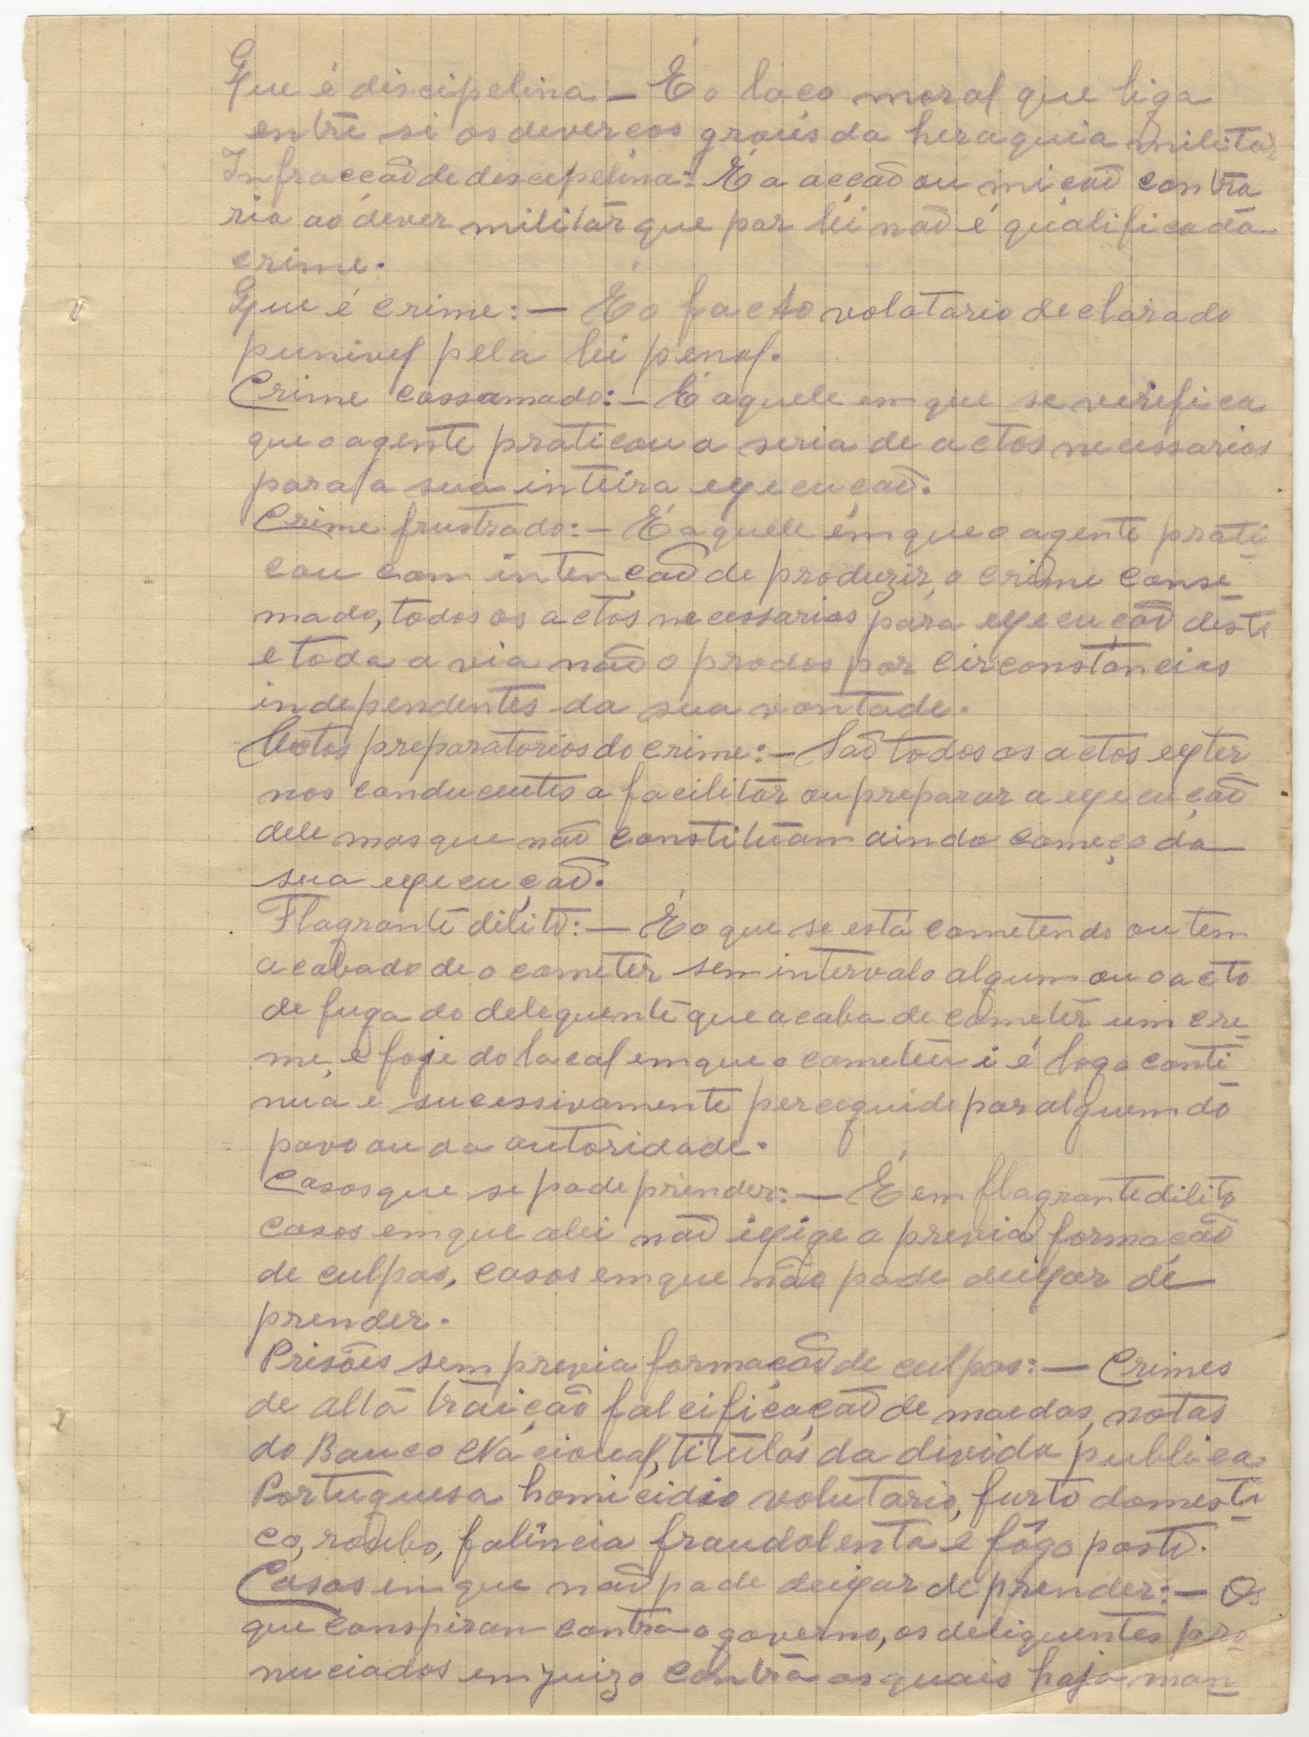 Que é discipelina — É o laco moral que liga
entre si os deverços graus da heraquia militar
Infraccão de descepelina: É a acção ou mição contra
ria ao dever militar que por lei não é qualificada
crime.
Que é crime: — É o facto volotario declarado
punivel pela lei penal.
Crime cossamado: — É aquele em que se verefica
que o agente praticou a seria de actos necessarios
para a sua inteira execucão.
Crime frustrado: — É aquele em que o agente prati
cou com intenção de produzir, o crime conse
mado, todos os actos necessarios para execução deste
e toda a via não o prodos por circonstancias
independentes da sua vontade.
Actos preparatorios do crime: — São todos os actos exter
nos conducentes a facilitar ou preparar a execução
dele mas que não constituam ainda começo da
sua execução.
Flagrante dilito: — É o que se está cometendo ou tem
acabado de o cometer sem intervalo algum ou o acto
de fuga do delequente que acaba de cometer um cre
me, e foje do local em que o cometeu i é logo conti
nua e sucessivamente perceguide por alguem do
povo ou da autoridade.
Casos que se pode prender: — É em flagrante dilito
casos em que a lei não ixige a previa formação
de culpas, casos em que não pode deixar de
prender.
Prisões sem previa formação de culpas: — Crimes
de alta traição falcificação de moedas, notas
do Banco Nacional, titulos da divida publica
Portuguesa homicidio volutario, furto domesti
co, roubo, falincia fraudolenta e fôgo posto.
Casos em que não pode deixar de prender: — Os
que conspiran contra o governo, os deliquentes pro
nuciados em juizo contra os quais haja man